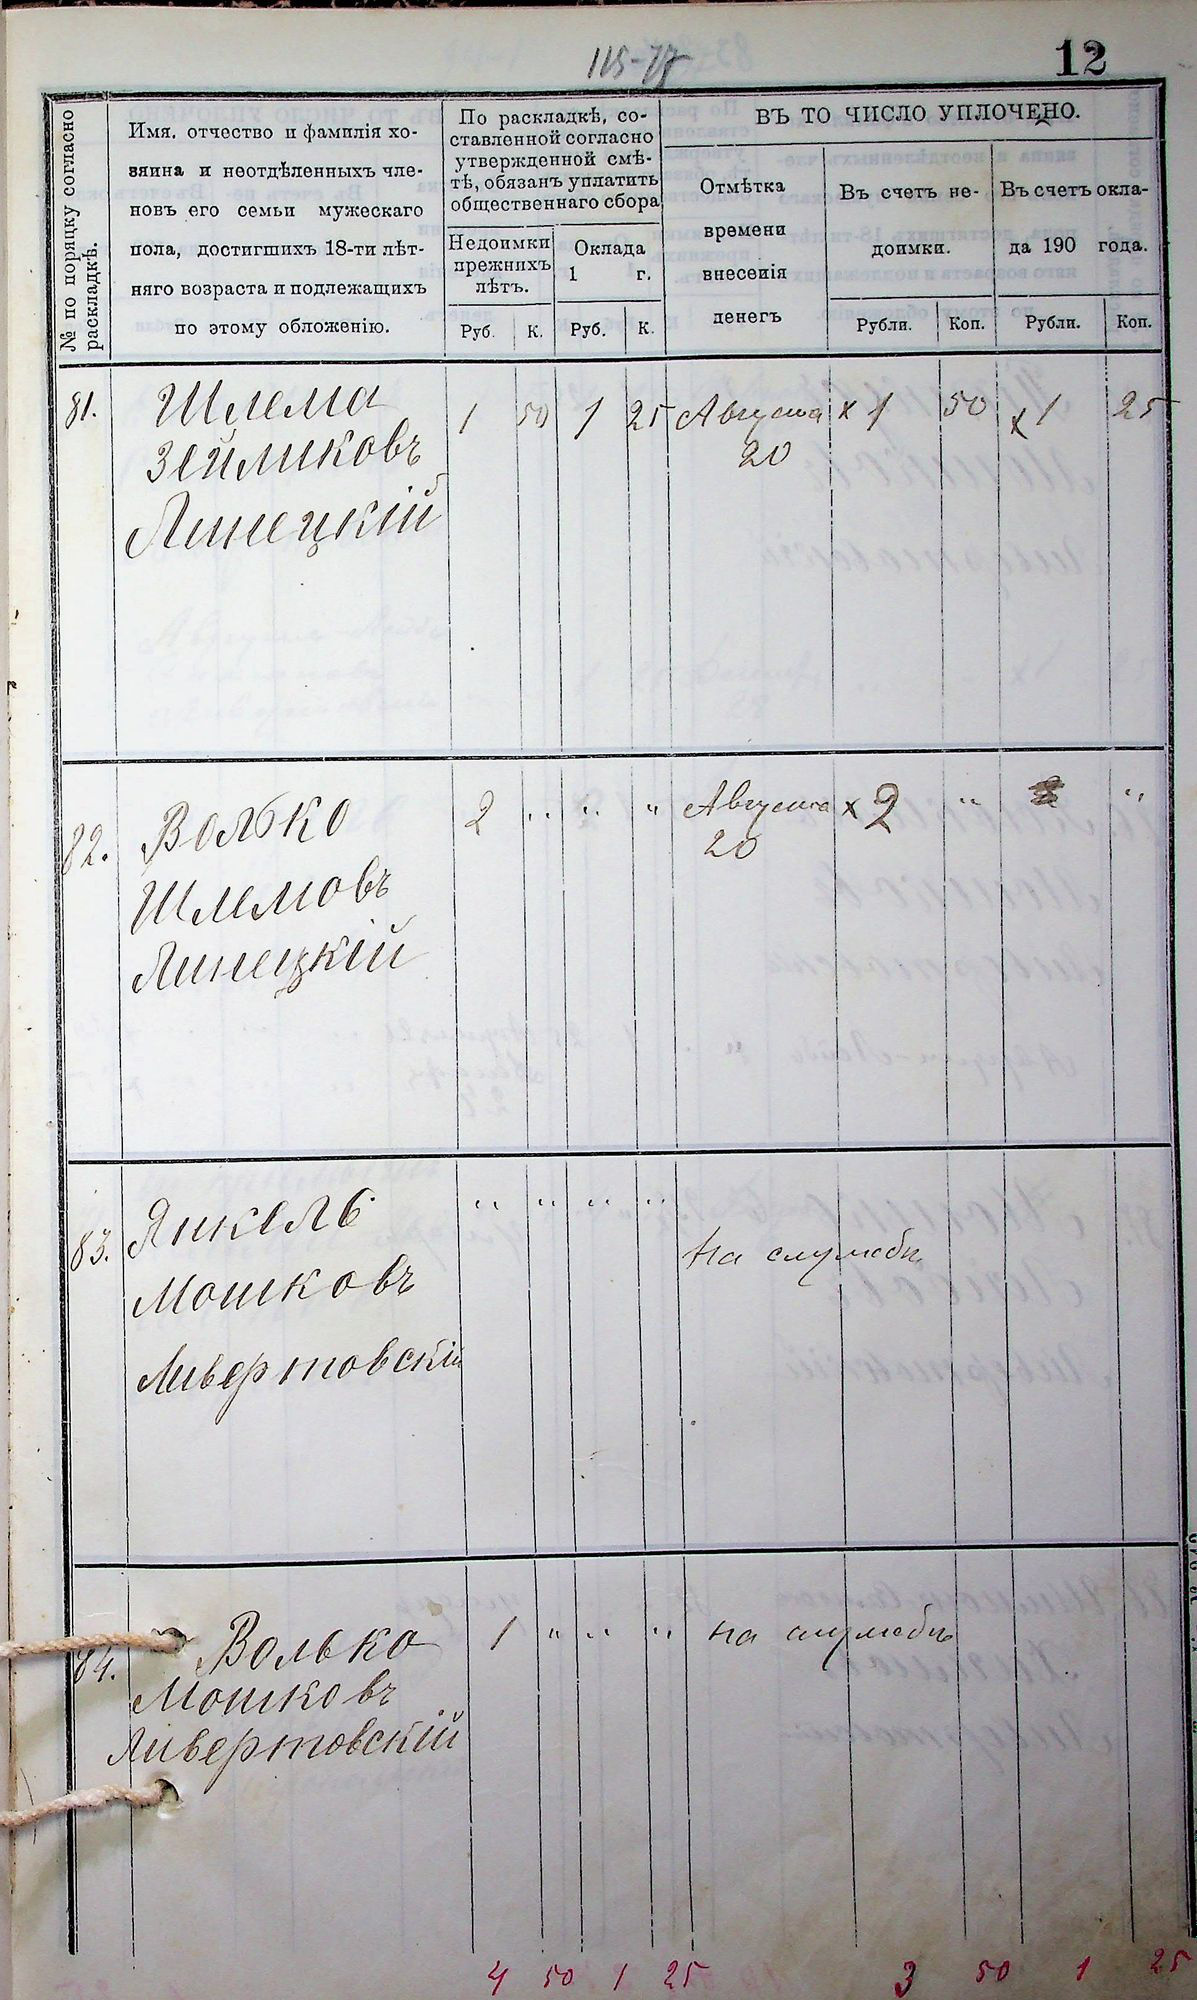 115-77
12
№ по порядку согласно раскладкѣ.
Имя, отчество и фамилія хо-
зяина и неотдѣленныхъ чле-
новъ его семьи мужескаго
пола, достигшихъ 18-ти лѣт-
няго возраста и подлежащихъ
по этому обложенію.
По раскладкѣ, со-
ставленной согласно
утвержденной смѣ-
тѣ, обязанъ уплатить
общественнаго сбора
Недоимки
прежнихъ
лѣтъ.
Оклада
1 г.
Руб. К. Руб. К.
ВЪ ТО ЧИСЛО УПЛОЧЕНО.
Отмѣтка
времени
внесенія
денегъ
Въ счетъ не-
доимки.
Рубли. Коп.
Въ счетъ окла-
да 190 года.
Рубли. Коп.
81. Шлема 1 50 1 25 Августа x 1 50 x 1 25
Зейликовъ 20
Линецкій
82. Волько 2 " " " Августа x 2 " "
Шлемовъ 20
Линецкій
83. Янкель " " " "
на службѣ
Мошковъ
Ливертовскій
84. Волько 1 " " " на службѣ
Мошковъ
Ливертовскій
4 50 1 25 3 50 1 25